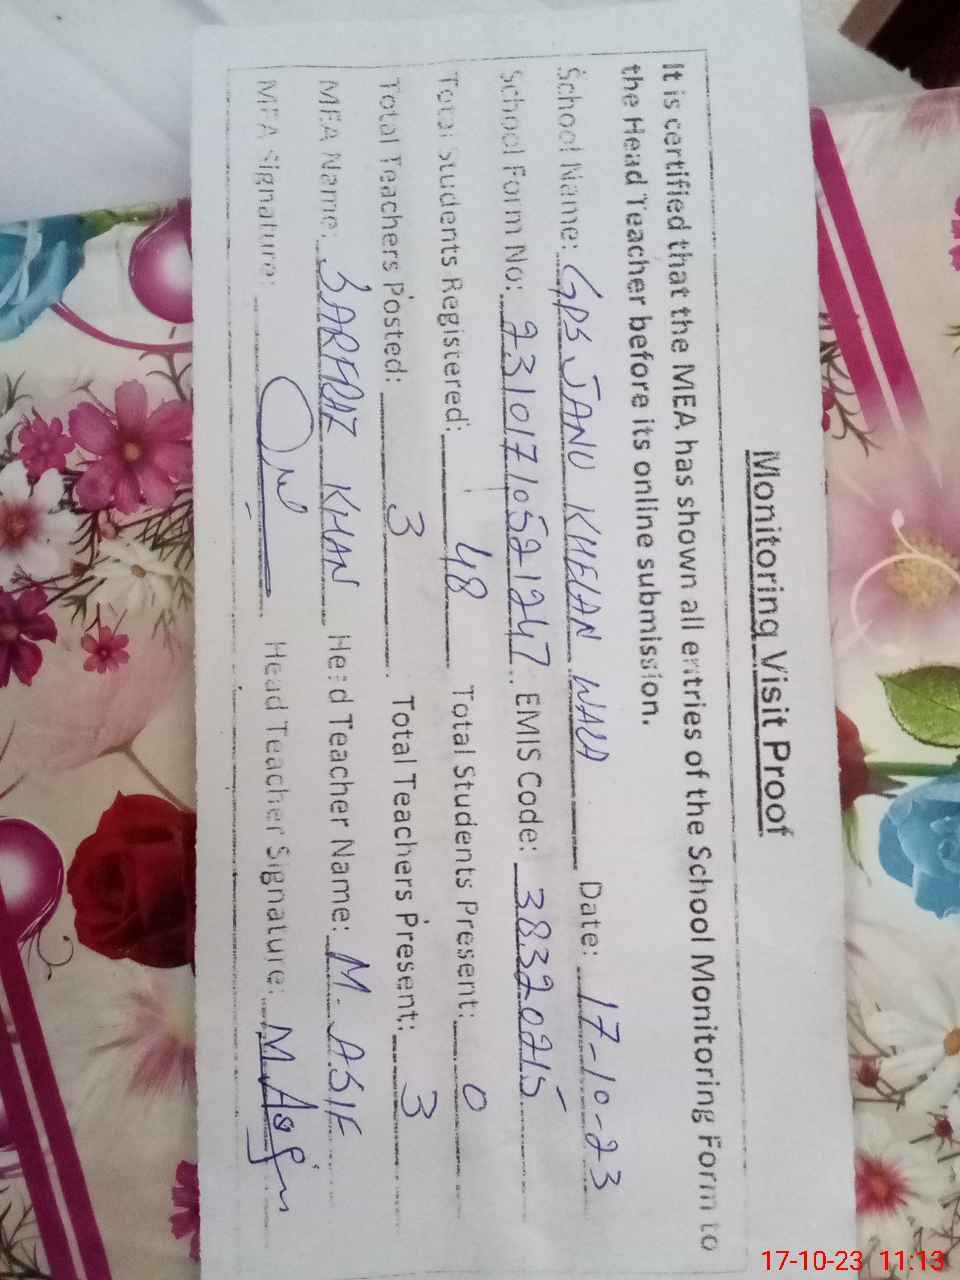 Monitoring Visit Proof
It is certified that the MEA has shown all entries of the School Monitoring Form to
the Head Teacher before its online submission.
School Name: GPS JANU KHELAN WALA Date: 17-10-23
School Form No: 23101710521247 EMIS Code: 38320215
Total Students Registered: 48 Total Students Present: 0
Total Teachers Posted: 3 Total Teachers Present: 3
MEA Name: SARFRAZ KHAN Head Teacher Name: M. ASIF
MEA Signature: Head Teacher Signature: M. Asif
17-10-23 11:13